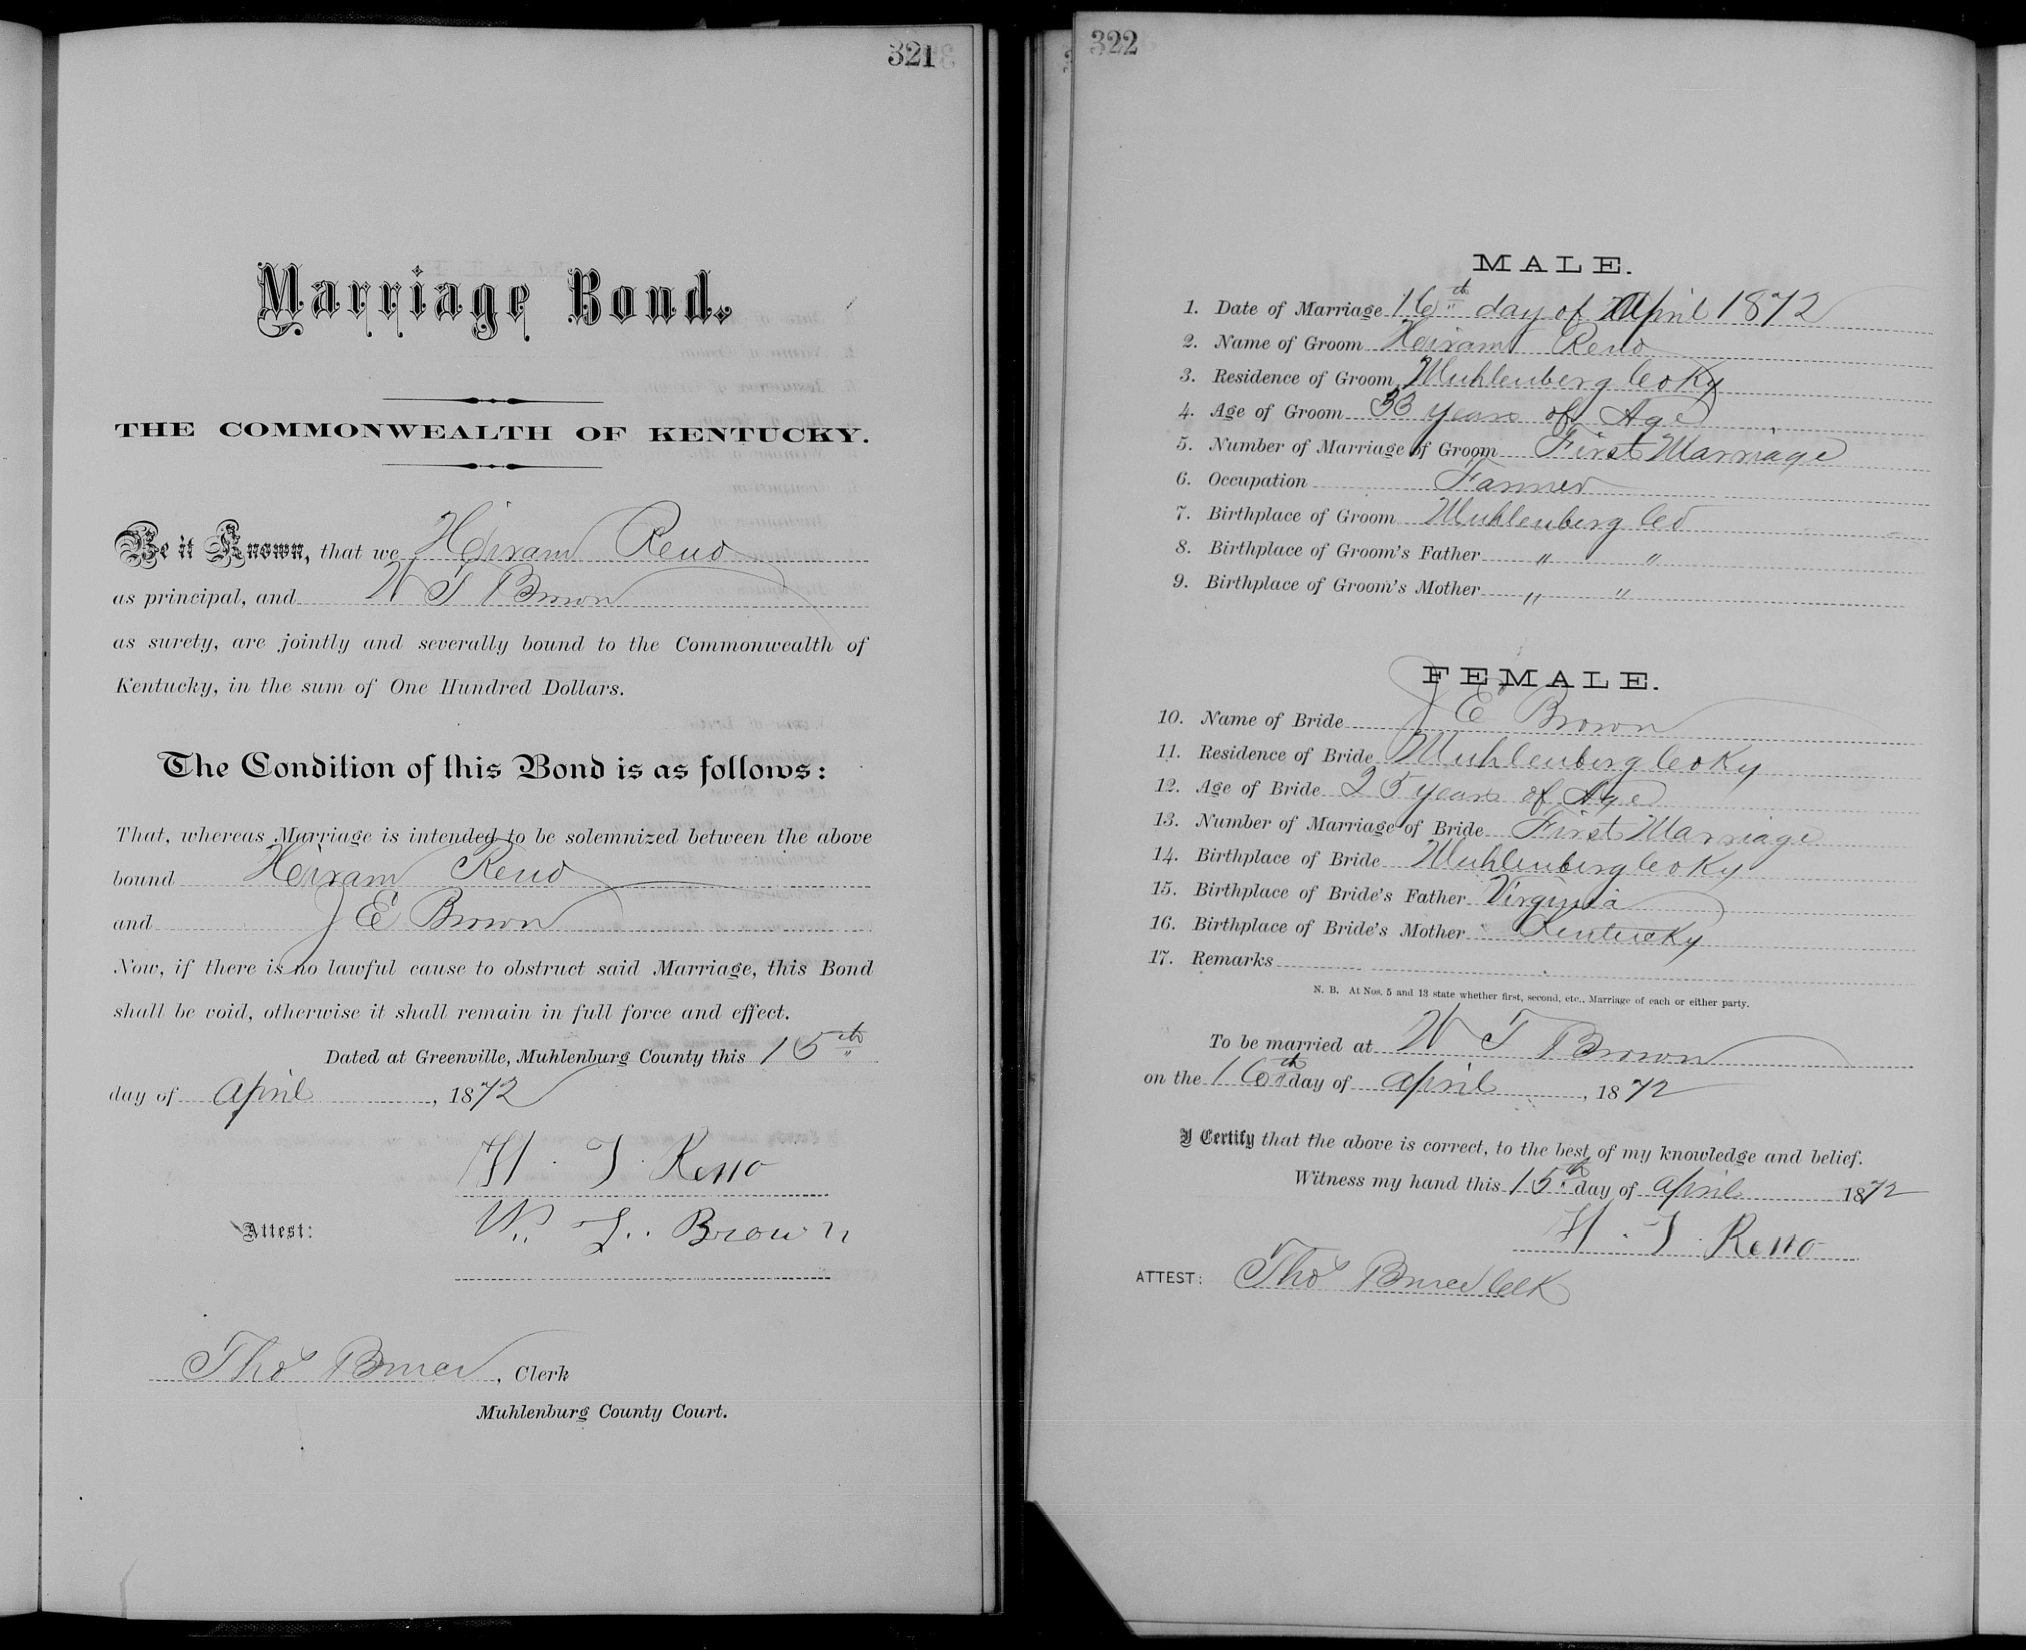 321
Marriage Bond.
THE COMMONWEALTH OF KENTUCKY.
Be it Known, that we Heiram Reno
as principal, and W T Brown
as surety, are jointly and severally bound to the Commonwealth of
Kentucky, in the sum of One Hundred Dollars.
The Condition of this Bond is as follows:
That, whereas Marriage is intended to be solemnized between the above
bound Heiram Reno
and J E Brown
Now, if there is no lawful cause to obstruct said Marriage, this Bond
shall be void, otherwise it shall remain in full force and effect.
Dated at Greenville, Muhlenburg County this 15th
day of April, 1872
H. T. Reno
Attest: W. T. Brown
Thos Bruce, Clerk
Muhlenburg County Court.
322
MALE.
1. Date of Marriage 16th day of April 1872
2. Name of Groom Heiram Reno
3. Residence of Groom Muhlenberg Co Ky
4. Age of Groom 33 years of Age
5. Number of Marriage of Groom First Marriage
6. Occupation Farmer
7. Birthplace of Groom Muhlenberg Co
8. Birthplace of Groom's Father " "
9. Birthplace of Groom's Mother " "
FEMALE.
10. Name of Bride J E Brown
11. Residence of Bride Muhlenberg Co Ky
12. Age of Bride 25 years of Age
13. Number of Marriage of Bride First Marriage
14. Birthplace of Bride Muhlenberg Co Ky
15. Birthplace of Bride's Father Virginia
16. Birthplace of Bride's Mother Kentucky
17. Remarks
N. B. At Nos. 5 and 13 state whether first, second, etc., Marriage of each or either party.
To be married at W T Brown
on the 16th day of April, 1872
I Certify that the above is correct, to the best of my knowledge and belief.
Witness my hand this 15th day of April 1872
H. T. Reno
ATTEST: Thos Bruce Clk